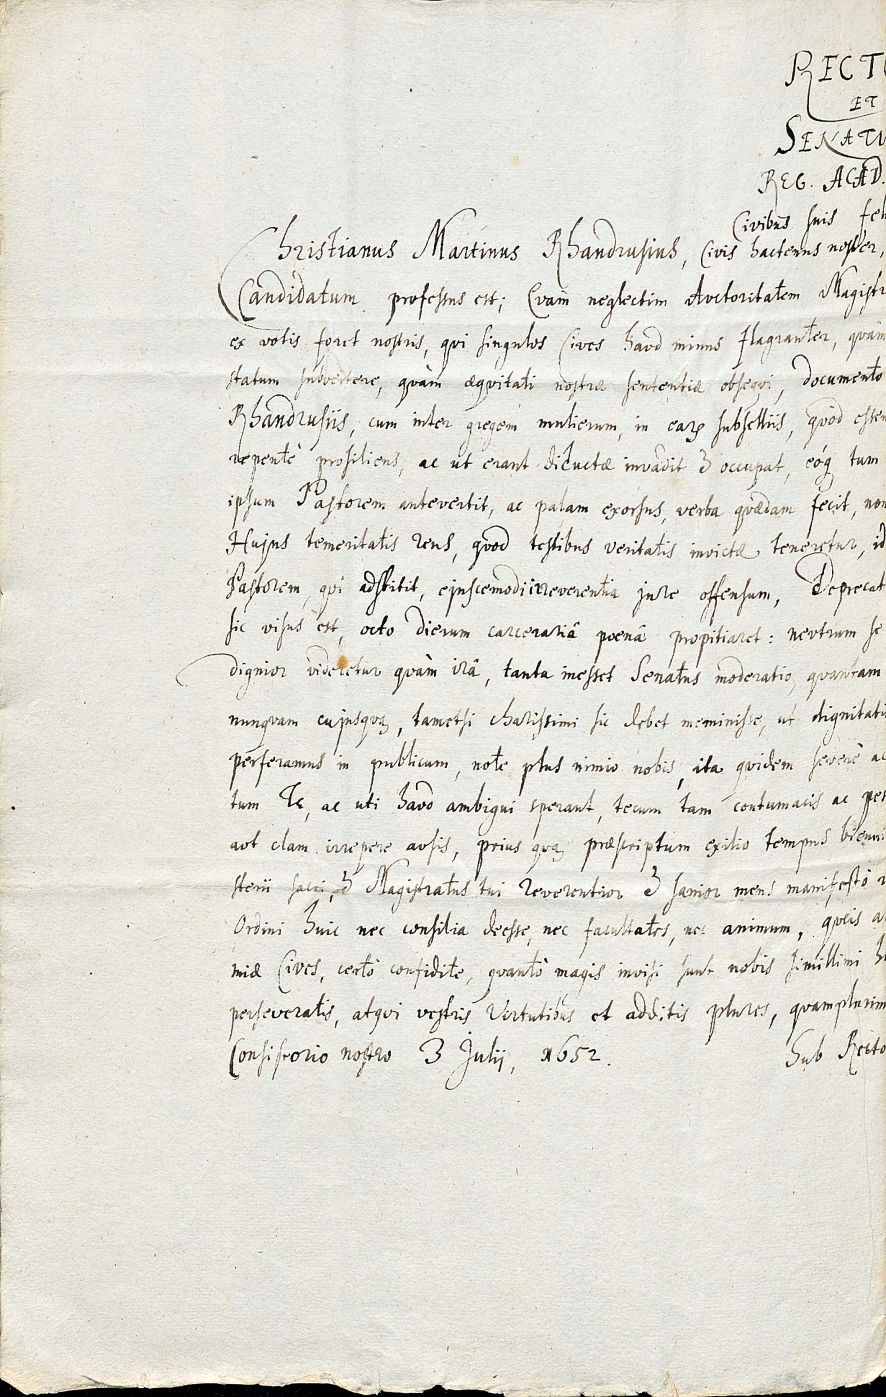 RECTO
ET
SENATU
REG. ACAD.
Civibus suis fel
Christianus Martinus Rhandrusius, Civis hactenus noster,
Candidatum professus est; Qvam neglectim Avctoritatem Magistr
ex votis foret nostris, qvi singulos Cives havd minus flagranter, qvam
statum subvertere, qvàm æqvitati nostræ sententiæ obseqvi, documento
Rhandrusiis, cum inter gregem mulierum, in ea subselliis, qvòd essen
repentè prosiliens, ac ut erant diductæ invadit & occupat, eóq tum
ipsum Pastorem antevertit, ac palam exorsus, verba qvædam fecit, non
Hujus temeritatis reus, qvod testibus veritatis invictæ teneretur, id
Pastorem, qvi adstitit, ejuscemodi irreverentia jure offensum, Deprecat
sic visus est, octo dierum carceratiâ poenâ propitiaret: nevtrum se
dignior videretur qvàm irâ, tanta inesset Senatus moderatio, qvantam
nunqvam cujusqvà, tametsi charissimi sic debet meminisse, ut dignitati
perferamus in publicum, note plus nimio nobis, ita qvidem severè ac
tum Te, ac uti havd ambigui sperant, tecum tam contumacis ac pet
avt clam irrepere avsis, prius qvà præscriptum exilio tempus bienni
sterii sacri, & Magistratus tui reverentior & sanior mens manifestò
Ordini huic nec consilia deesse, nec facultates, nec animum, qveis
miæ Cives, certò confidite, qvantò magis invisi sunt nobis simillimi
perseveratis, atqvi vestris Virtutibus et additis plures, qvamplurim
Consistorio nostro 3 Julij, 1652. Sub Recto